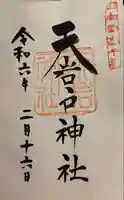 天岩戸神社
令和六年
二月十六日